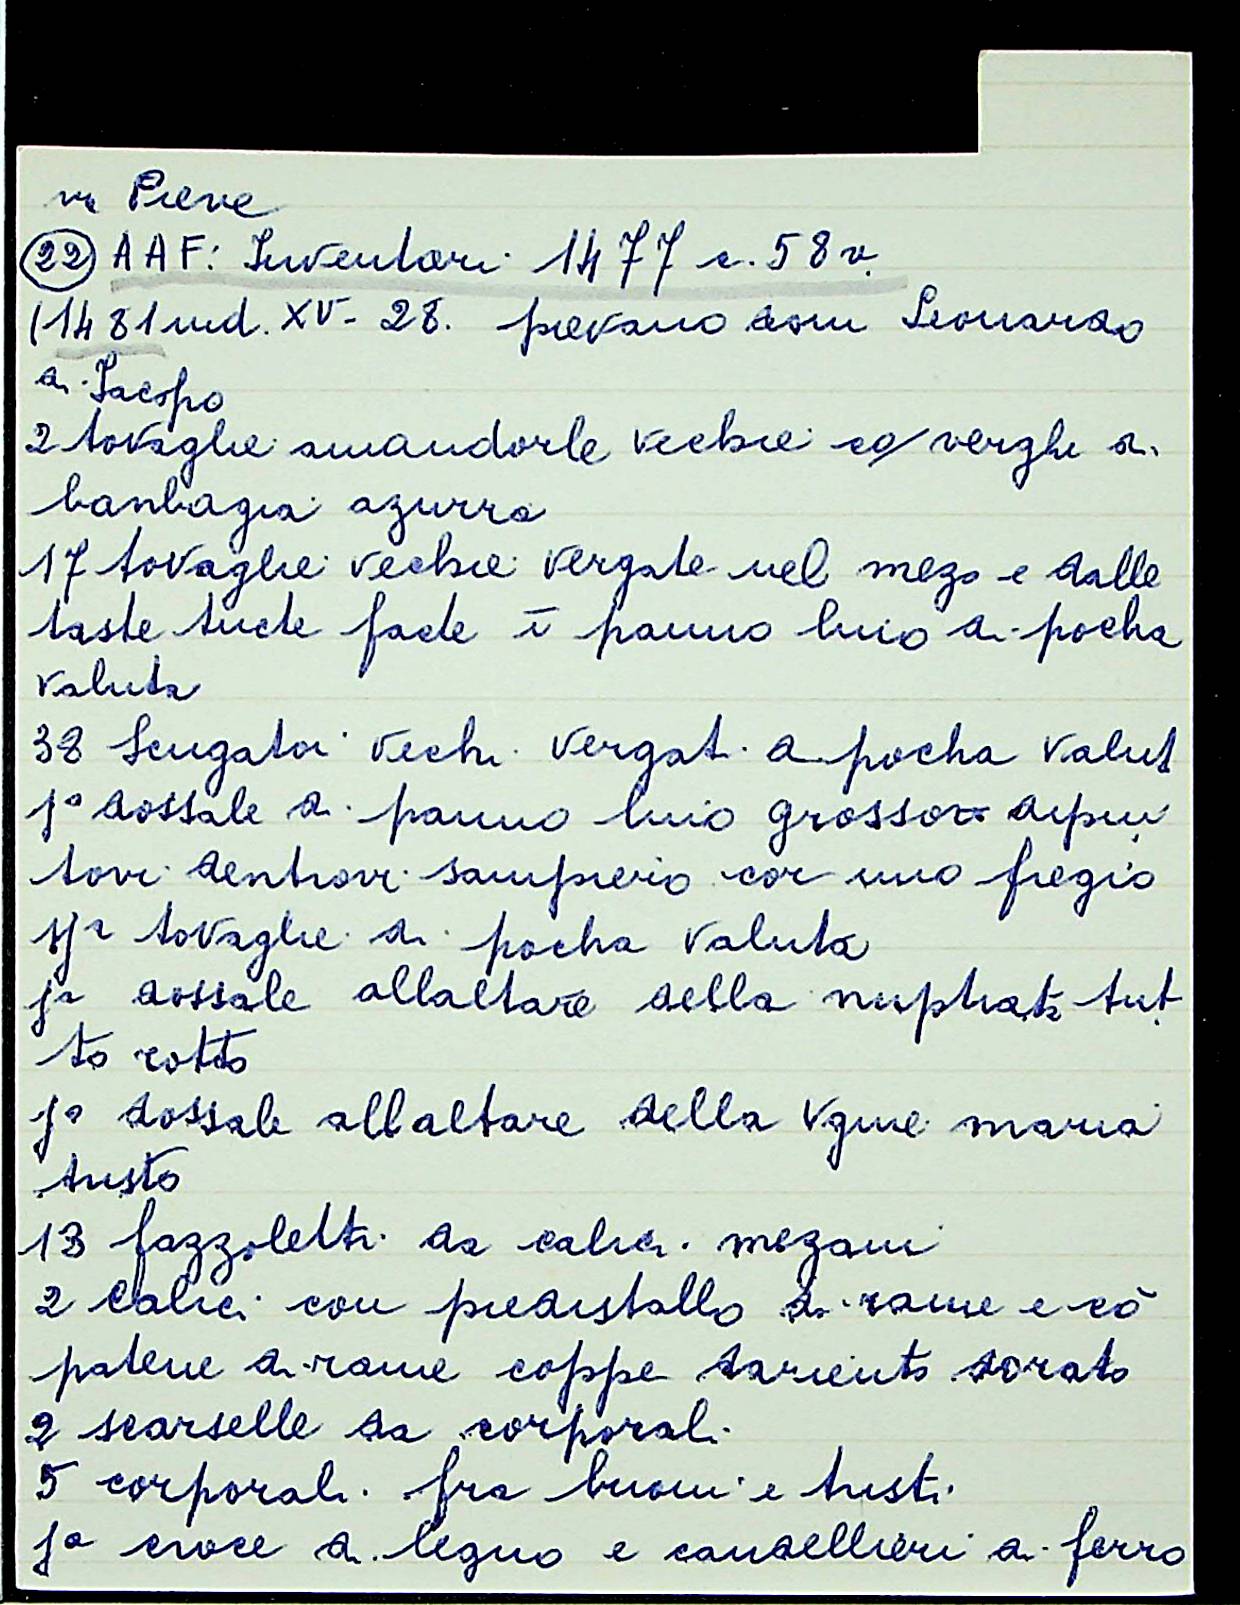 in Pieve
(22) AAF: Inventari 1477 c. 58 v.
(1481 ind. XV - 28. pievano dom Leonardo
di Iacopo
2 tovaglie amandorle vechie co verghe di
banbagia azurra
17 tovaglie vechie vergate nel mezo e dalle
taste tucte facte ī panno lino di pocha
valuta
38 sciugatoi vechi vergati di pocha valut
j° dossale di panno lino grosso dipin
tovi dentrovi sampiero cor uno fregio
ijª tovaglie di pocha valuta
jª dossale allaltare della nuphiata tut
to rotto
j° dossale allaltare della vgine maria
tristo
13 fazzoletti da calici mezani
2 Calici con piedistallo di rame e cō
patene di rame coppe dariento dorato
2 scarselle da corporali
5 corporali fra buoni e tristi
jª croce di legno e candellieri di ferro